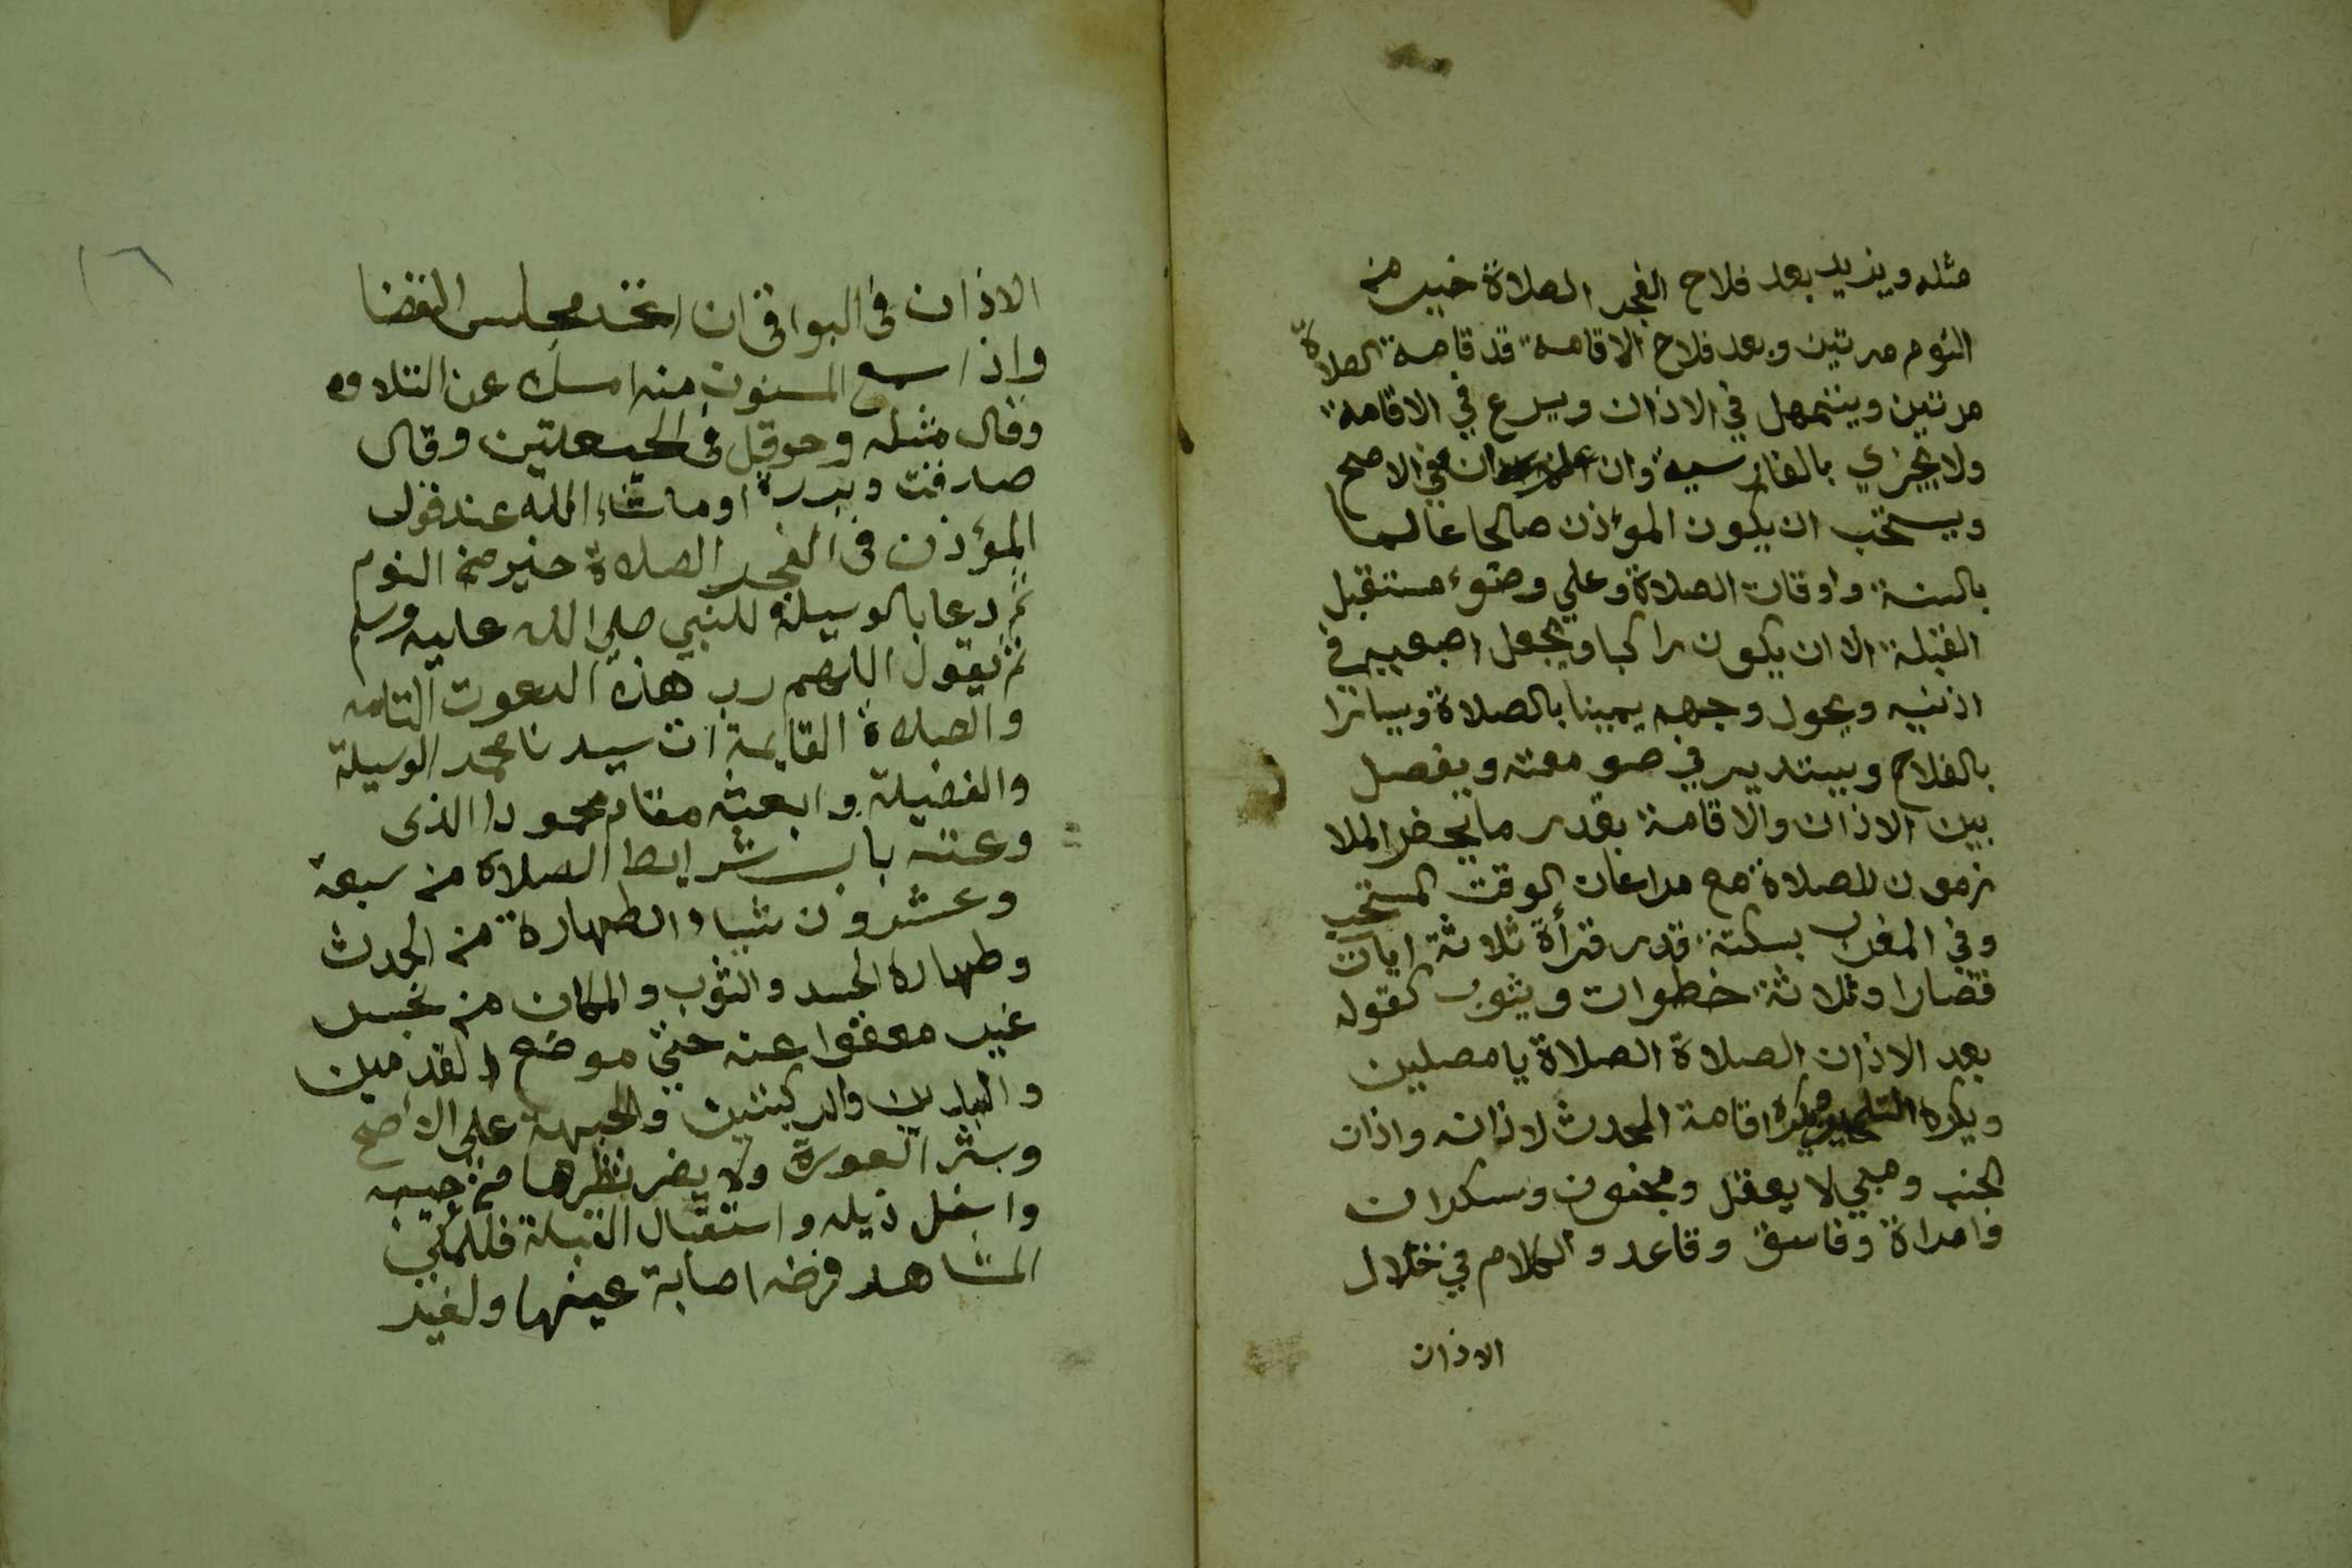 مثله ويزيد بعد فلاح الفجر الصلاة خير من
النوم مرتين وبعد فلاح الاقامة قد قامة الصلاة
مرتين ويتمهل في الاذان ويسرع في الاقامة
ولا يجزي بالفارسية وان علم انه اذان في الاصح
ويستحب ان يكون المؤذن صالحا عالما
بالسنة واوقات الصلاة وعلي وضوء مستقبل
القبلة الا ان يكون راكبا ويجعل اصبعيه في
اذنيه ويحول وجهه يمينا بالصلاة ويسارا
بالفلاح ويستدير في صومعته ويفصل
بين الاذان والاقامة بقدر ما يحضر الملا
زمون للصلاة مع مراعات الوقت المستحب
وفي المغرب بسكتة قدر قرأة ثلاثة ايات
قصارا وثلاثة خطوات ويثوب كقوله
بعد الاذان الصلاة الصلاة يا مصلين
ويكره التلحين ويكره اقامة المحدث لاذانه واذان
الجنب وصبي لا يعقل ومجنون وسكران
وامراة وفاسق وقاعد والكلام في خلال
الاذان
١٦
الاذان فى البواقى ان اتخد مجلس القضا
واذا سمع المسنون منه امسك عن التلاوه
وقال مثله وحوقل فى الحيعلتين وقال
صدقت وبررة او ماشاء الله عند قول
المؤذن فى الفجر الصلاة خير من النوم
ثم دعا بالوسيلة للنبي صلي الله عليه وسلم
ثم يقول اللهم رب هذه الدعوت التامه
والصلاة القايمة ات سيدنا محمد الوسيلة
والفضيلة وابعثه مقام محمودا الذى
وعدته باب شرايط الصلاة من سبعة
وعشرون شياء الطهارة من الحدث
وطهارة الجسد والثوب والمكان من نجس
غير معفوا عنه حتي موضع القدمين
واليدين والركبتين والجبهة علي الاصح
وستر العورة ولا يضر نظرها من جيبه
واسفل ذيله واستقبال القبلة فللمكي
المشاهد فرضه اصابة عينها ولغير